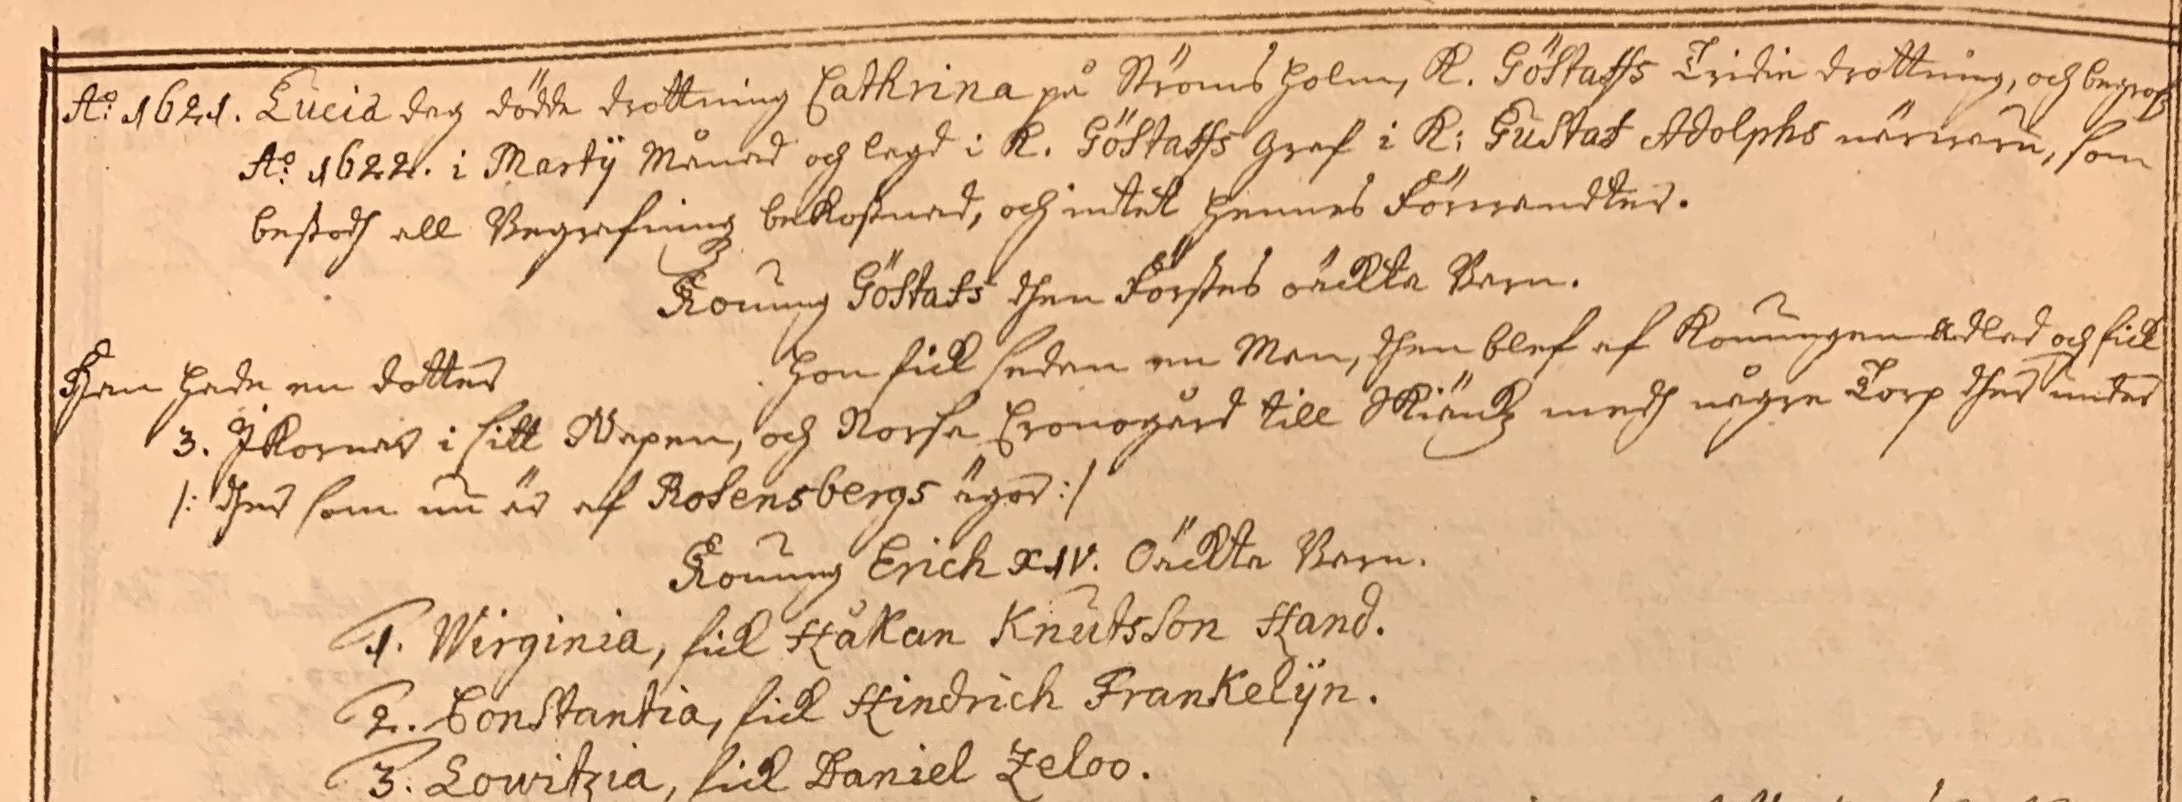 A:o 1621. Lucia dag dödde drottning Cathrina på Ströms holm, K. Göstaffs Tridie drottning, och begrofz
A:o 1622. i Martij Månad och lagd i K. Göstaffs graf i K: Gustaf Adolphs närvaru, som
bestodh all Begrafning bekostnad, och intet hennes Förvandter.
Konung Göstafs then Förstes oäckta Barn.
Han hade en dotter hon fick sedan en Man, then blef af Konungen adlad och fick
3. Jkornar i sitt Wapen, och Norsa Cronogård till Skänk medh någre Torp ther under
/: ther som nu är af Rosensbergs ägor :/
Konung Erich XIV. Oäckta Barn.
1. Wirginia, fick Håkan Knutsson Hand.
2. Constantia, fick Hindrich Frankelijn.
3. Lowitzia, fick Daniel Zeloo.